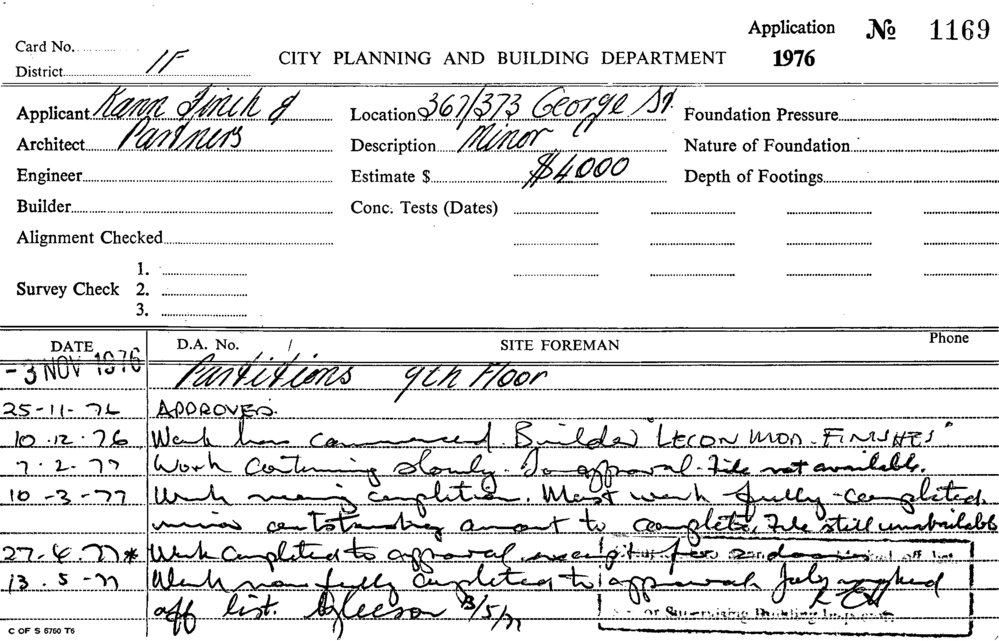 Application № 1169
Card No.
1976
CITY PLANNING AND BUILDING DEPARTMENT
District 1F
Applicant Kann Finch &
Location 367/373 George St.
Foundation Pressure
Architect Partners
Description Minor
Nature of Foundation
Engineer
Estimate $ $4000
Depth of Footings
Builder
Conc. Tests (Dates)
Alignment Checked
1.
Survey Check 2.
3.
DATE D.A. No. / SITE FOREMAN Phone
- 3 NOV 1976 Partitions 9th Floor
25-11-76 APPROVED.
10.12.76 Work has commenced. Builder "LECON MOD. FINISHES"
7.2.77 Work continuing slowly. To approval. File not available.
10-3-77 Work nearing completion. Most work fully completed
minor outstanding amount to complete. File still unavailable
27-4.77* Work completed to approval except for 2 doors
13.5-77 Work now fully completed to approval
off list. Gleeson 13/5/77
Supervising Building Inspector
C OF S 5750 T6